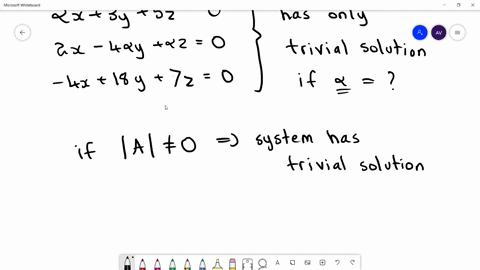 Microsoft Whiteboard
AV
αx + 3y + 5z 0
2x - 4αy + αz = 0
-4x + 18y + 7z = 0
has only
trivial solution
if α = ?
if |A| ≠ 0 ⇒ system has
trivial solution